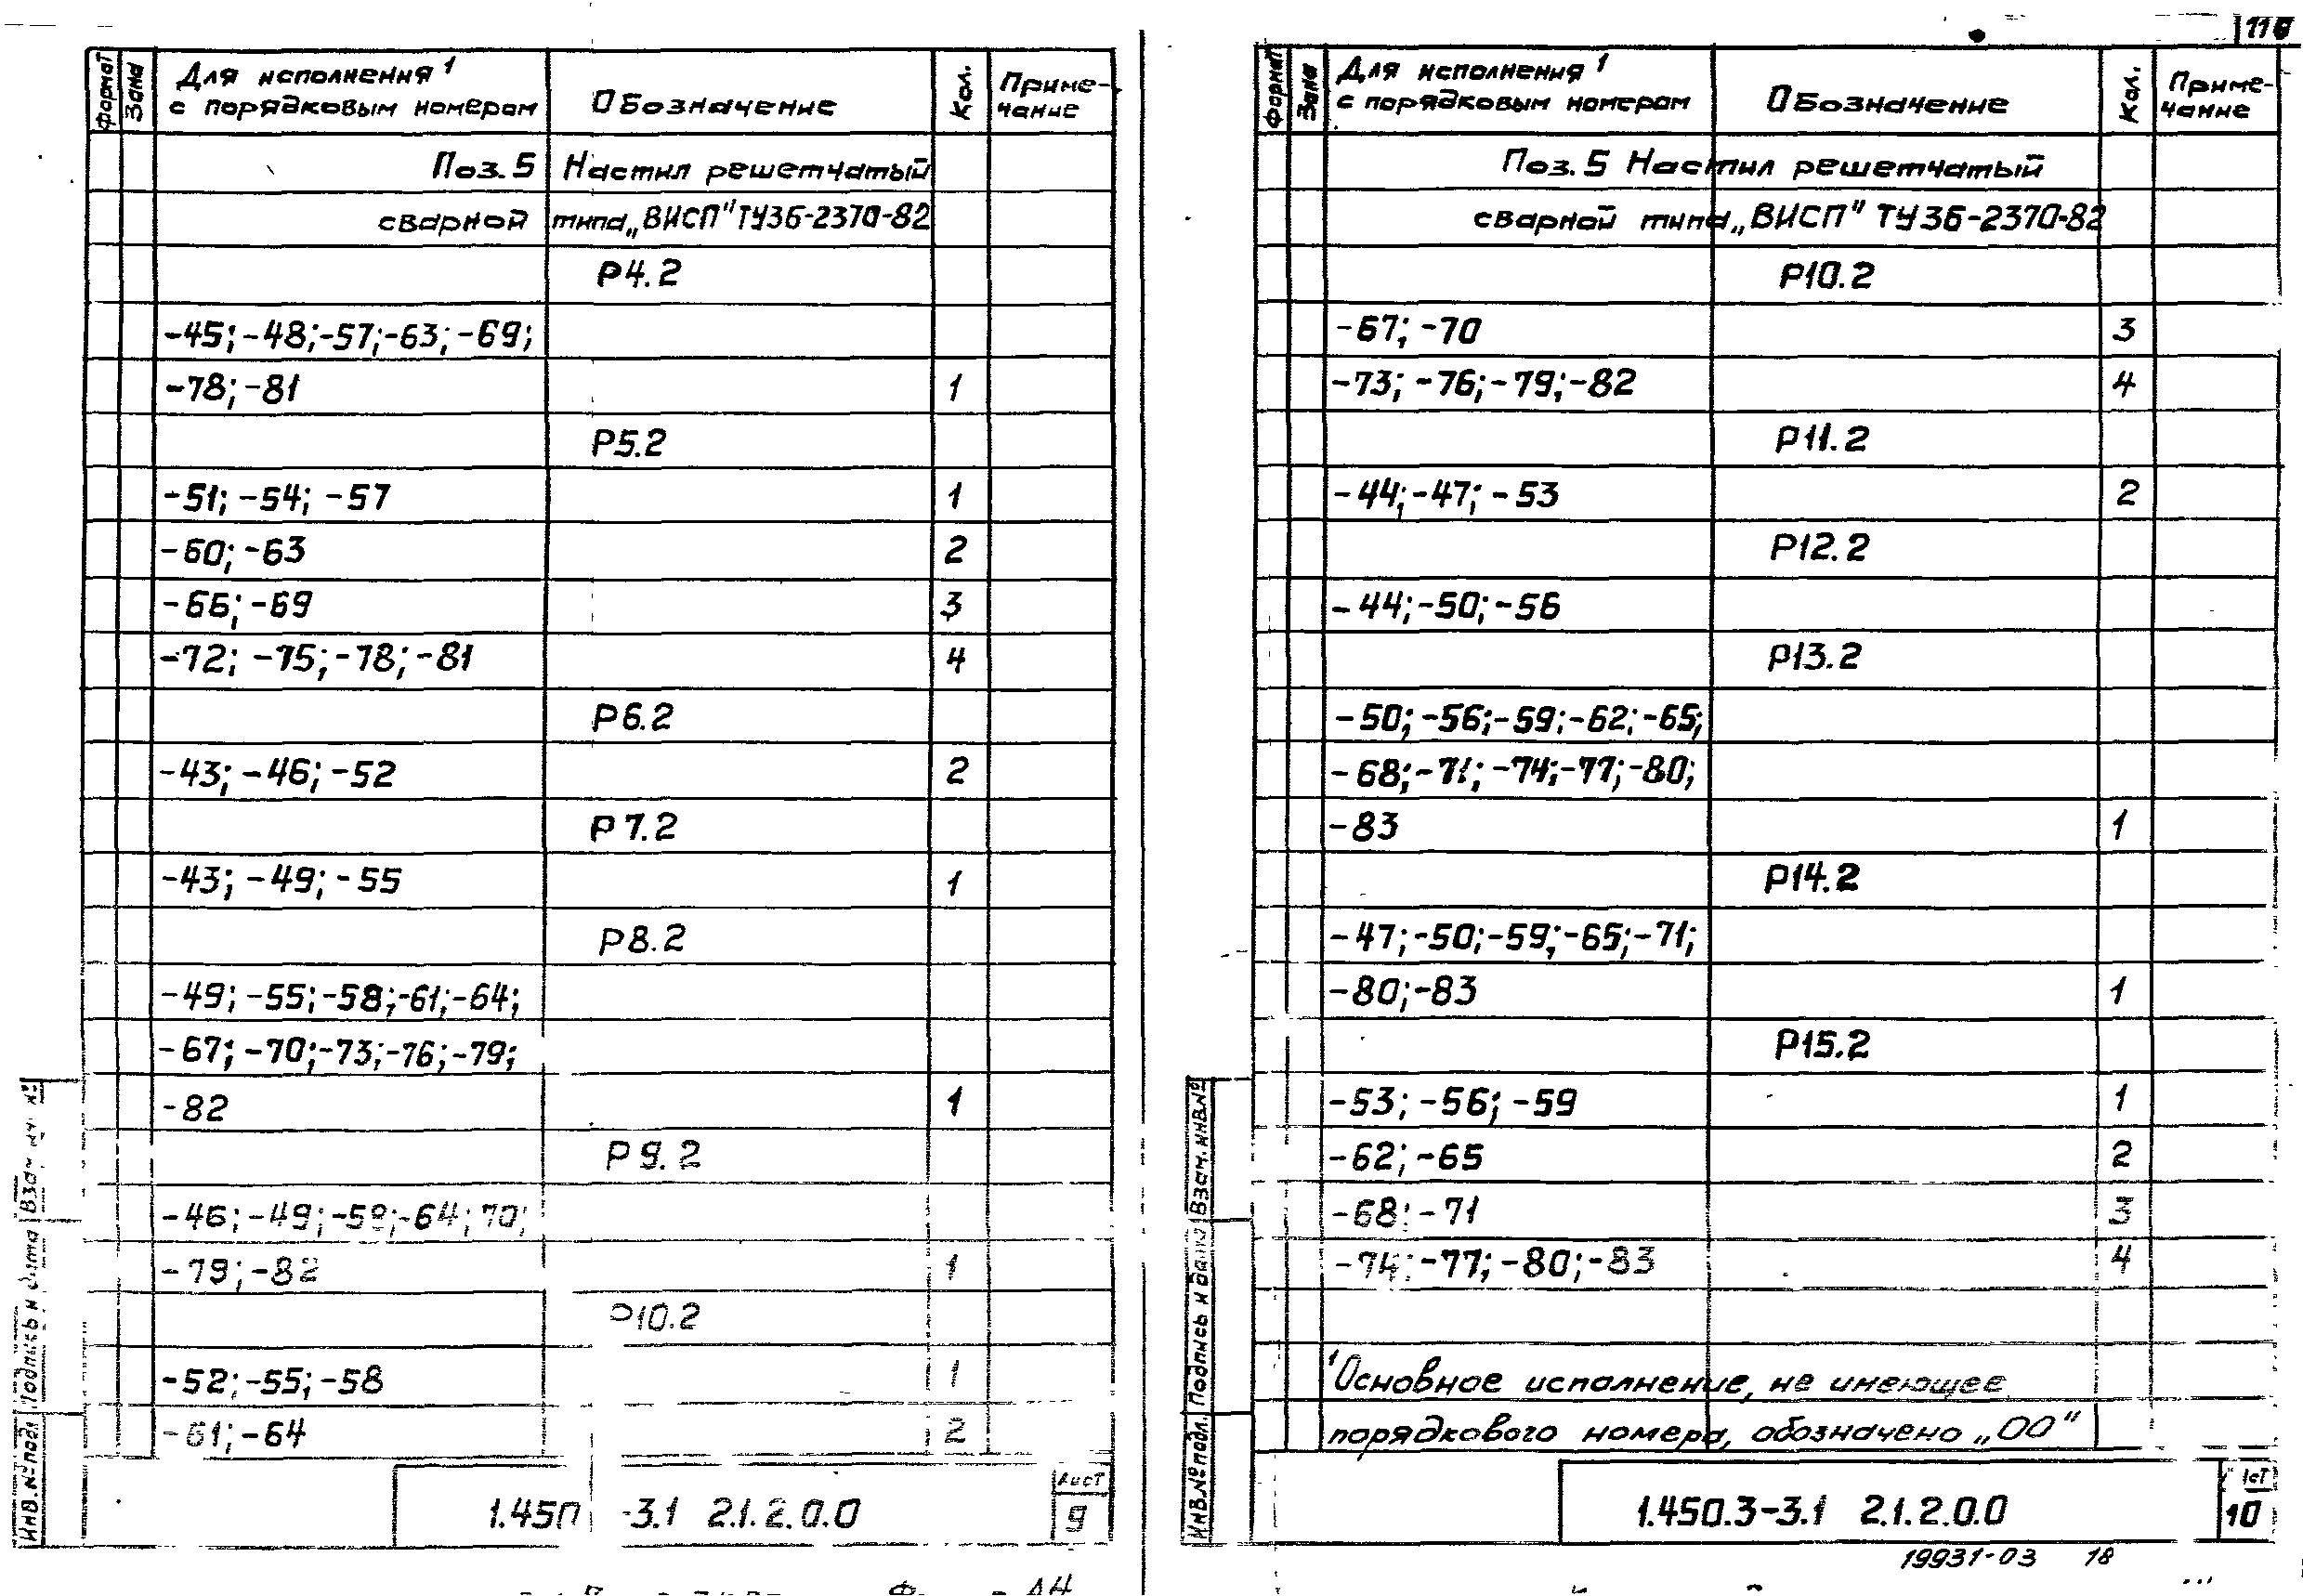 Формат Зона Для исполнения ¹ с порядковым номером Обозначение Кол. Приме-чание
Поз. 5 Настил решетчатый
сварной типа „ВИСП" ТУ36-2370-82
Р4.2
-45; -48; -57; -63; -69;
-78; -81 1
Р5.2
-51; -54; -57 1
-60; -63 2
-66; -69 3
-72; -75; -78; -81 4
Р6.2
-43; -46; -52 2
Р7.2
-43; -49; -55 1
Р8.2
-49; -55; -58; -61; -64;
-67; -70; -73; -76; -79;
-82 1
Р9.2
-46; -49; -58; -64; 70;
-79; -82 1
Р10.2
-52; -55; -58 1
-61; -64 2
Инв.№подл. Подпись и дата
1.450 -3.1 2.1.2.0.0
Лист
9
116
Формат Зона Для исполнения ¹ с порядковым номером Обозначение Кол. Приме-чание
Поз. 5 Настил решетчатый
сварной типа „ВИСП" ТУ36-2370-82
Р10.2
-67; -70 3
-73; -76; -79; -82 4
Р11.2
-44; -47; -53 2
Р12.2
-44; -50; -56
Р13.2
-50; -56; -59; -62; -65;
-68; -71; -74; -77; -80;
-83 1
Р14.2
-47; -50; -59; -65; -71;
-80; -83 1
Р15.2
-53; -56; -59 1
-62; -65 2
-68; -71 3
-74; -77; -80; -83 4
¹Основное исполнение, не имеющее
порядкового номера, обозначено „00"
Инв.№подл. Подпись и дата Взам.инв.№
1.450.3-3.1 2.1.2.0.0
10
19931-03 18